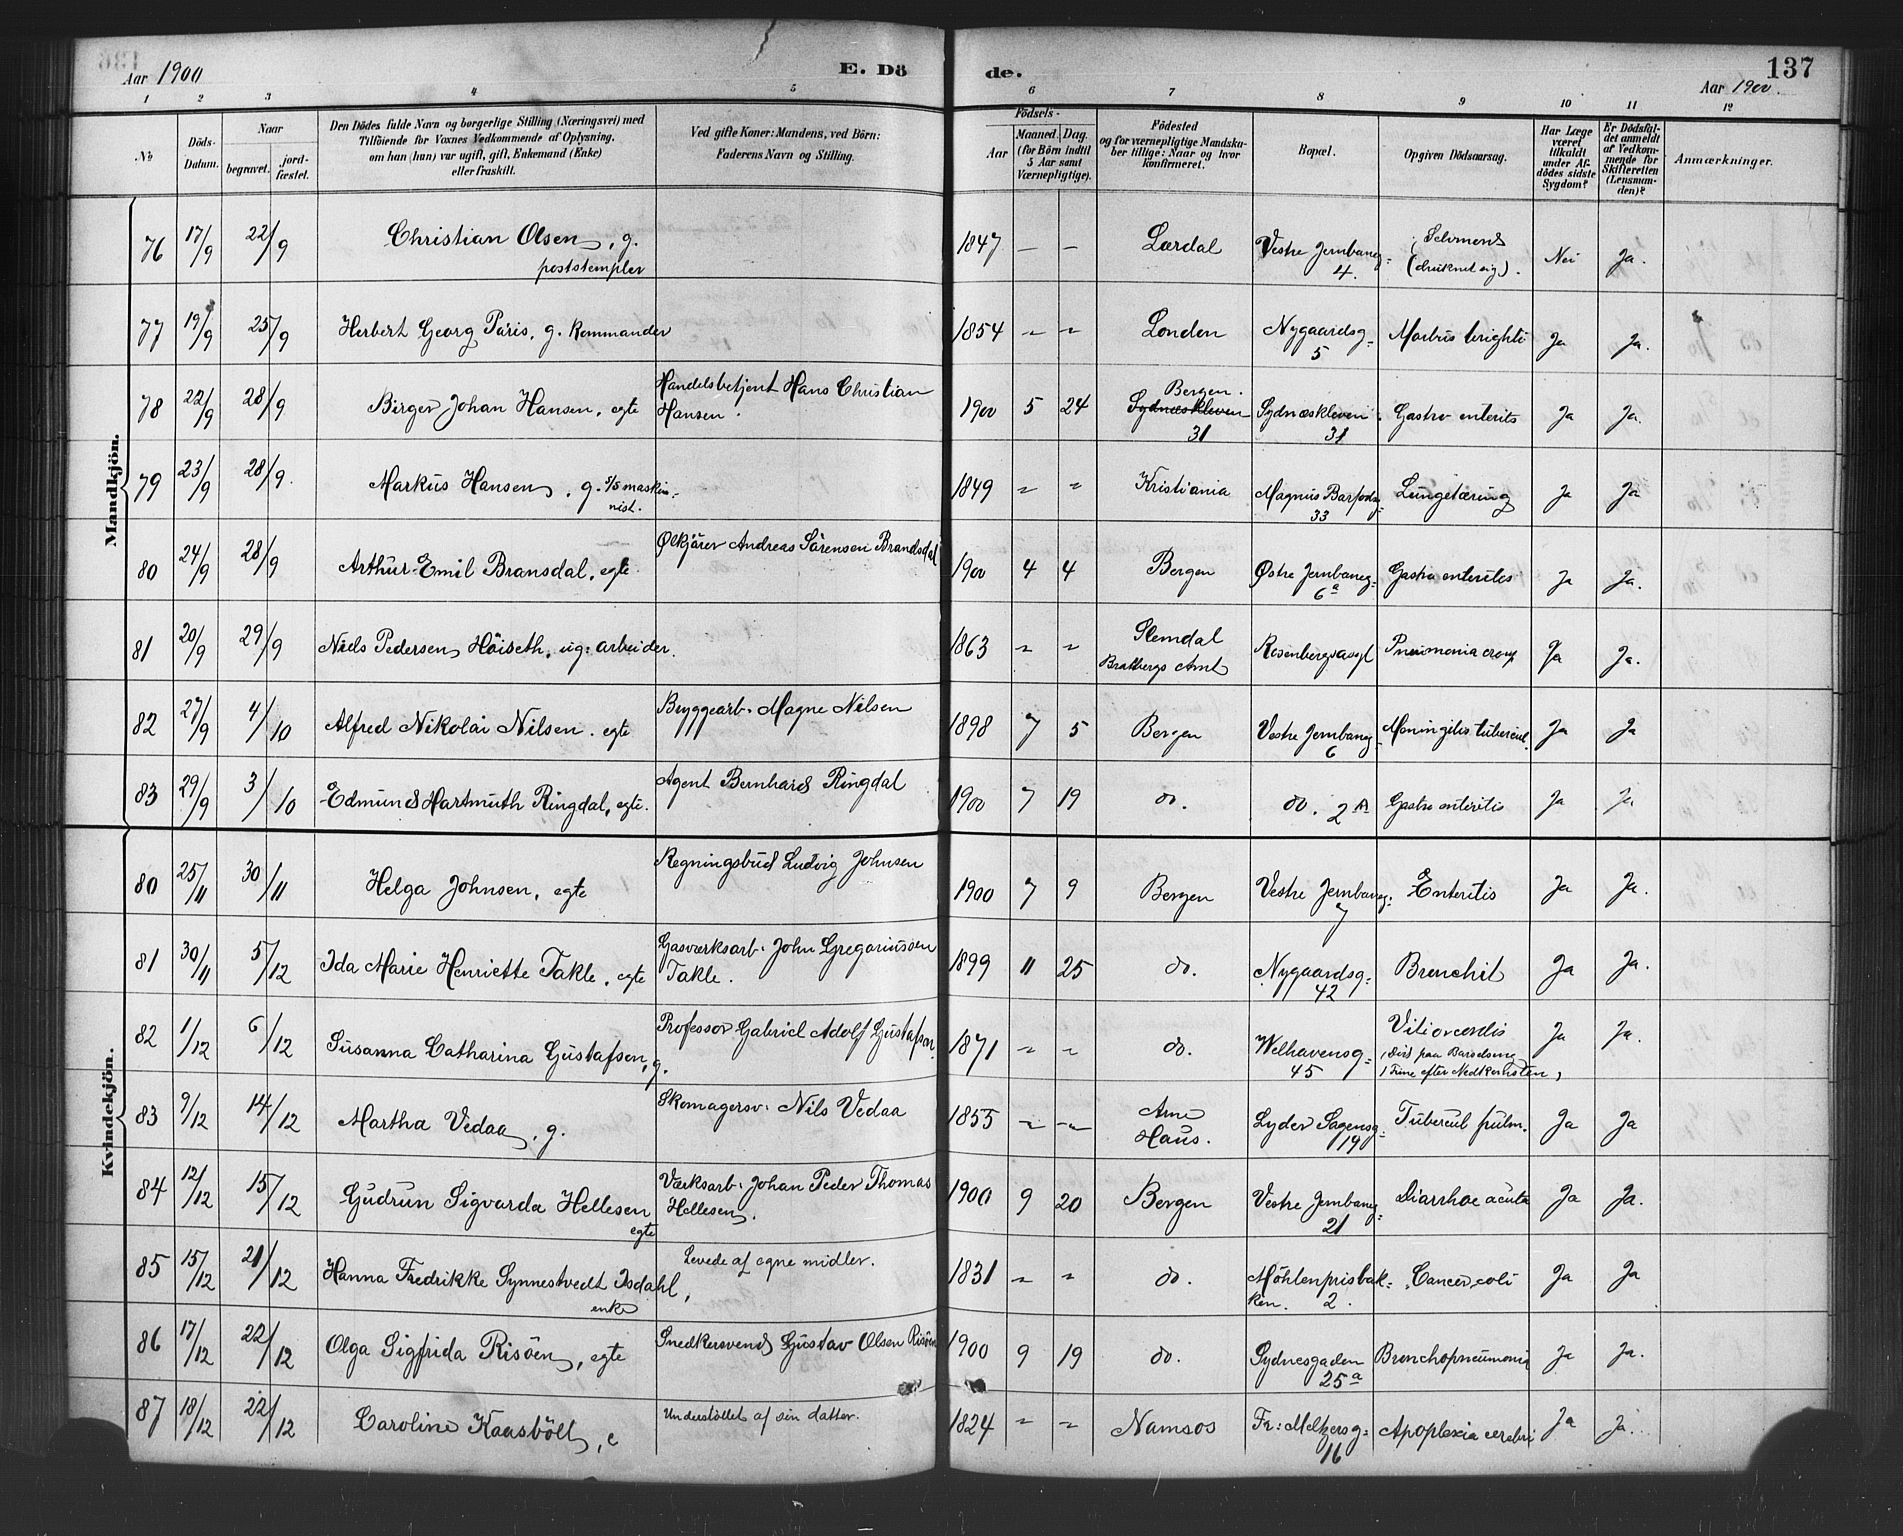 Aar 1900
E. Dö
de.
137
Aar 1900.
1 2 3 4 5 6 7 8 9 10 11 12
No
Döds-Datum.
Naar
begravet.
jord-fæstet.
Den Dödes fulde Navn og borgerlige Stilling (Næringsvei) med
Tilföiende for Voxnes Vedkommende af Oplysning,
om han (hun) var ugift, gift, Enkemand (Enke)
eller fraskilt.
Ved gifte Koner: Mandens, ved Börn:
Faderens Navn og Stilling.
Födsels-
Aar
Maaned. Dag.
(for Börn indtil
5 Aar samt
Værnepligtige).
Födested
og for værnepligtige Mandska-
ber tillige: Naar og hvor
konfirmeret.
Bopæl.
Opgiven Dödsaarsag.
Har Læge
været
tilkaldt
under Af-
dödes sidste
Sygdom?
Er Dödsfal-
det anmeldt
af Vedkom-
mende for
Skifteretten
(Lensman-
den)?
Anmærkninger.
Mandkjön.
76 17/9 22/9 Christian Olsen, g. 1847 — — Lærdal Vestre Jernbaneg: Nei Ja.
poststempler 4. (druknet sig).
77 19/9 25/9 Herbert Georg Paris, g. Kommandør 1854 " " London Nygaardsg: Morbus brighti Ja Ja.
5
78 22/9 28/9 Birger Johan Hansen, egte Handelsbetjent Hans Christian
Hansen. 1900 5 24 Bergen.
Sydnæskleven Sydnæskleven Gastro enterits Ja Ja.
31 31
79 23/9 28/9. Markus Hansen, g. s/s maskin-
nist. 1849 " " Kristiania Magnus Barfodsg: Lungetæring Ja Ja
33
80 24/9 28/9 Arthur Emil Bransdal, egte Ølkjörer Andreas Sörensen Brandsdal 1900 4 4 Bergen Østre Jernbaneg: Gastro enterites Ja Ja.
6a
81 20/9 29/9 Niels Pedersen Höiseth, ug: arbeider. 1863 " " Slemdal Rosenbergsasyl Pneumonia croup Ja Ja.
Bratsbergs Amt
82 27/9 4/10 Alfred Nikolai Nilsen. egte Bryggearb. Magne Nilsen 1898 7 5 Bergen Vestre Jernbaneg: Meningitis tubercul. Ja Ja
6
83 29/9 3/10 Edmund Hartmuth Ringdal, egte. Agent Bernhard Ringdal 1900 7 19 do. do. 2A Gastro enteritis Ja Ja
Kvindekjön.
80 25/11 30/11 Helga Johnsen, egte Regningsbud Ludvig Johnsen 1900 7 9 Bergen Vestre Jernbaneg: Enteritis Ja Ja.
7
81 30/11 5/12 Ida Marie Henriette Takle, egte Gasværksarb. John Gregoriussen
Takle. 1899 11 25 do. Nygaardsg: Bronchit Ja Ja.
42
82 1/12 6/12 Susanna Catharina Gustafson, g. Professor Gabriel Adolf Gustafson. 1871 " " do. Welhavensg: Vitio cordis Ja Ja.
45 (Död paa Barselseng
1 Time efter Nedkomsten)
83 9/12 14/12 Martha Vedaa, g. Skomagersv: Nils Vedaa 1855 " " Arne
Haus. Lyder Sagensg: Tubercul pulm. Ja Ja
19
84 12/12 15/12 Gudrun Sigvarda Hellesen
egte Værksarb. Johan Peder Thomas
Hellesen. 1900 9 20 Bergen Vestre Jernbaneg: Diarrhoe acuta Ja Ja.
21
85 15/12 21/12 Hanna Fredrikke Synnestvedt Isdahl,
enke Levede af egne midler. 1831 " " do. Möhlenprisbak-
ken. 2. Cancer coli Ja Ja
86 17/12 22/12 Olga Sigfrida Risöen, egte Snedkersvend Gustav Olsen Risöen 1900 9 19 do. Sydnesgaden Bronchopneumoni Ja Ja.
25a
87 18/12 22/12 Caroline Kaasböll, e Understöttet af sin datter. 1824 " " Namsos Fr: Meltzersg: Apoplexia cerebri Ja Ja.
16